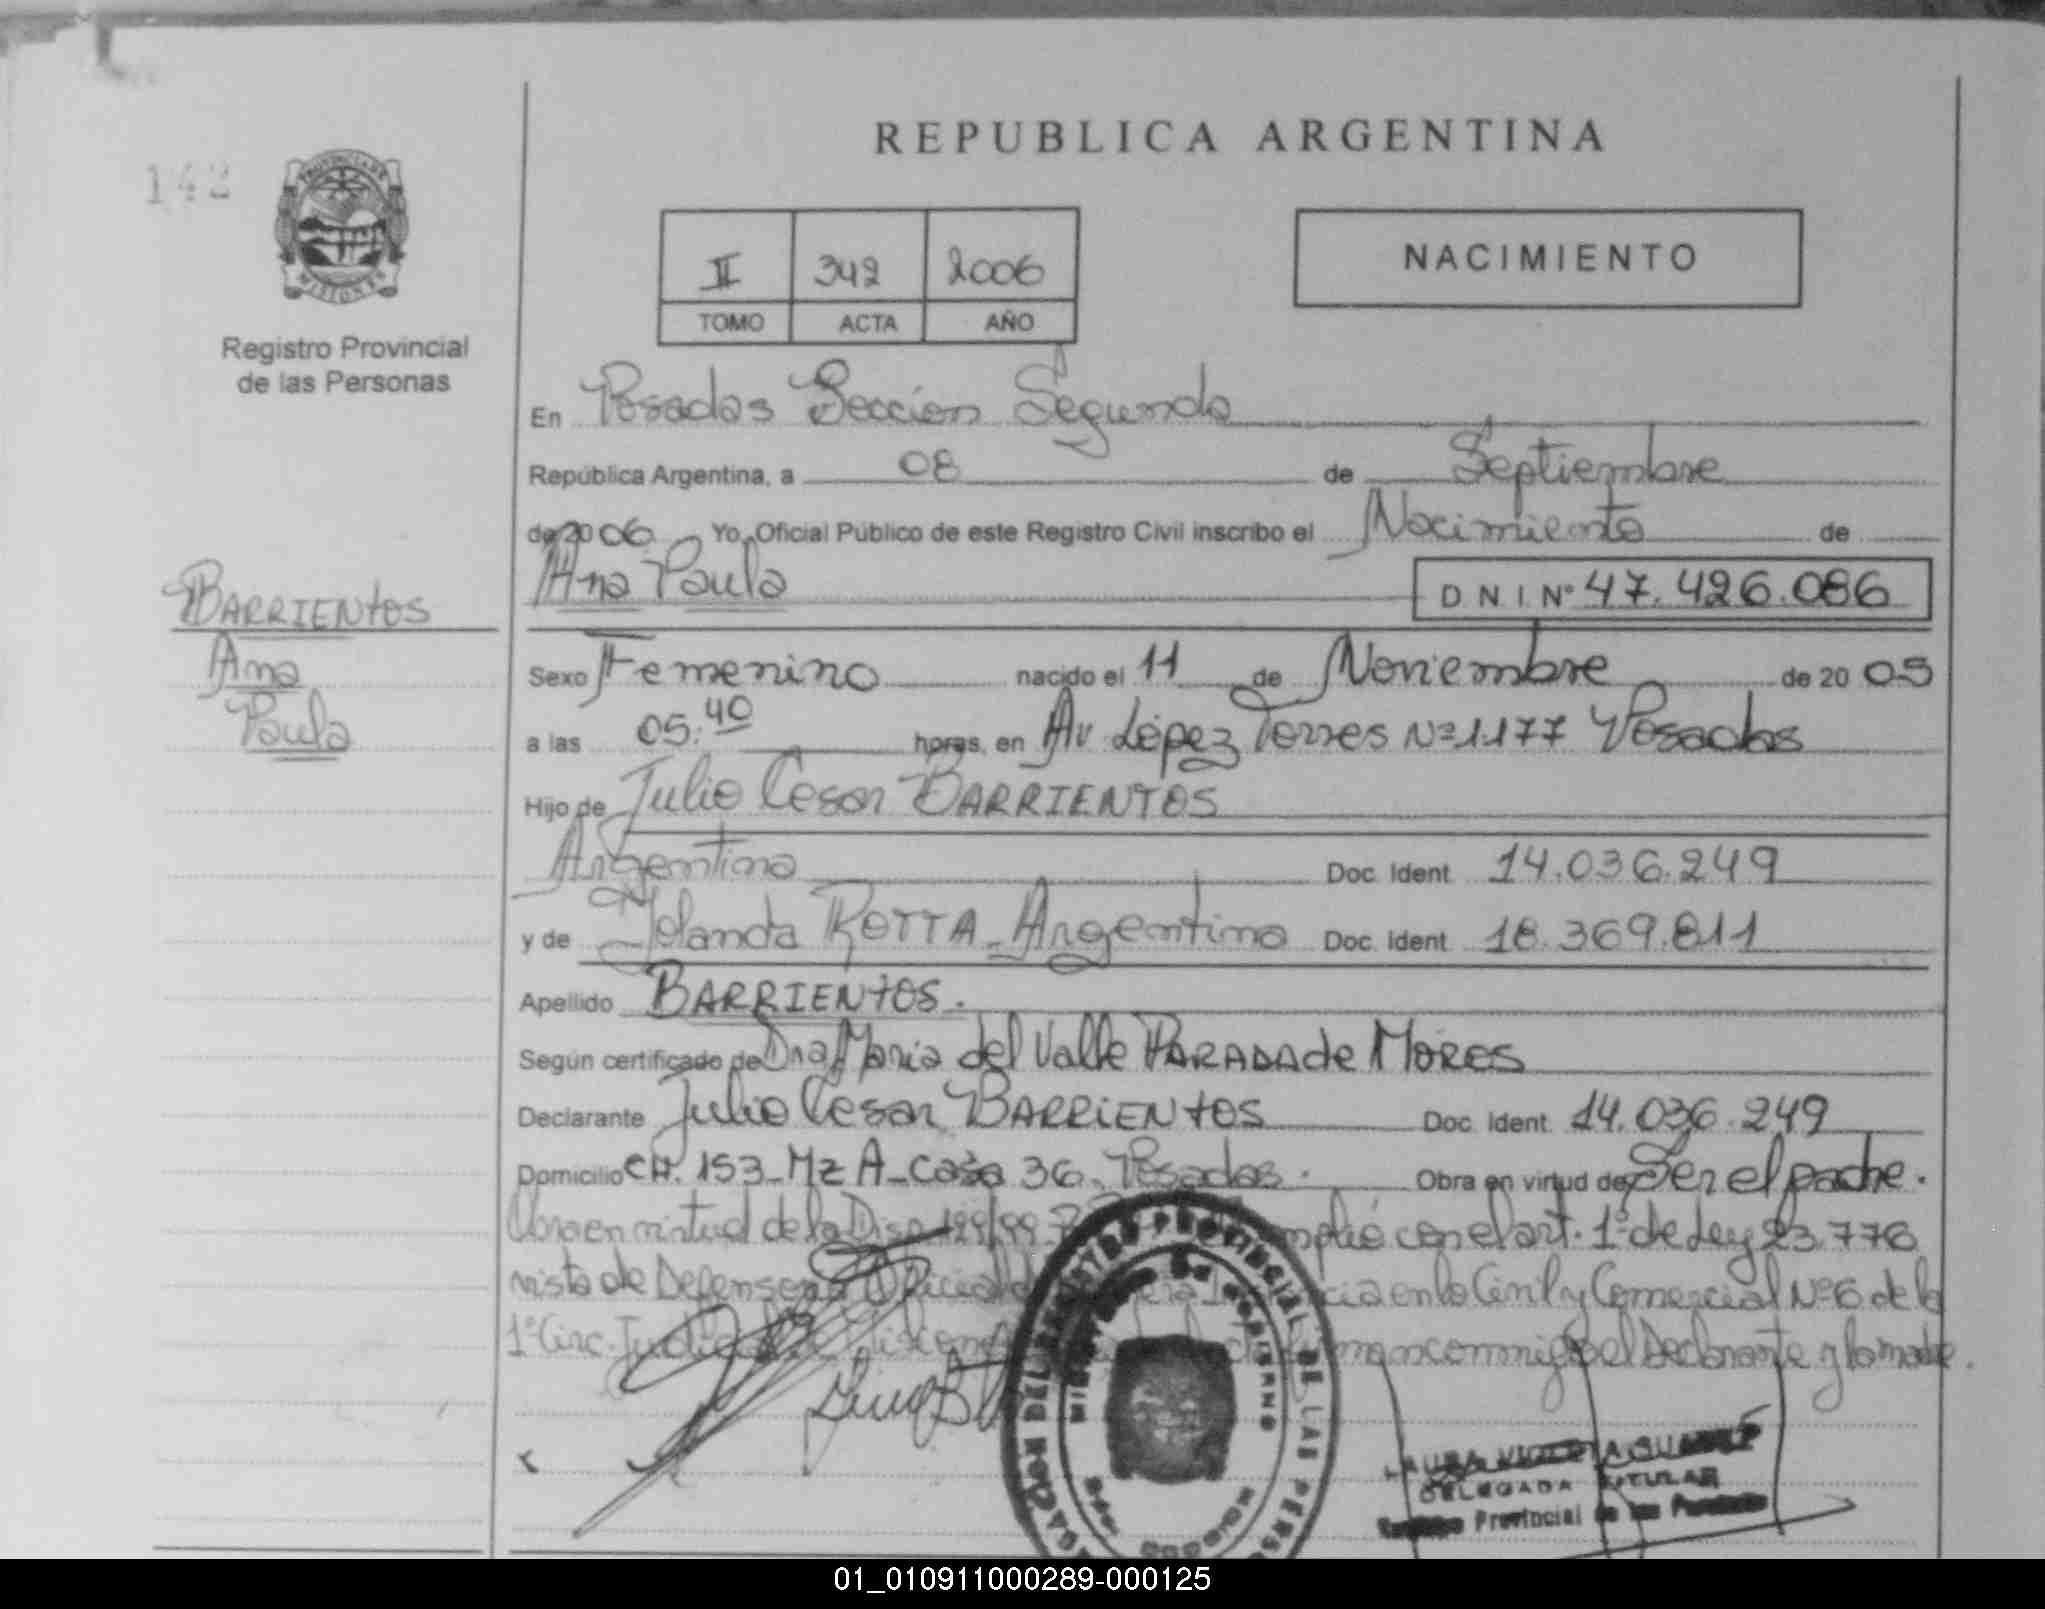 REPUBLICA ARGENTINA
142
PROVINCIA DE
MISIONES
Registro Provincial
de las Personas
II 342 2006
TOMO ACTA AÑO
NACIMIENTO
En Posadas Seccion Segunda
República Argentina, a 08 de Septiembre
de 2006 Yo, Oficial Público de este Registro Civil inscribo el Nacimiento de
Ana Paula DNI Nº 47.426.086
BARRIENTOS
Ana
Paula
Sexo Femenino nacido el 11 de Noviembre de 2005
a las 05:40 horas, en Av. López Torres Nº 1177 Posadas
Hijo de Julio Cesar BARRIENTOS
Argentina Doc. Ident 14.036.249
y de Yolanda ROTTA - Argentina Doc. Ident 18.369.811
Apellido BARRIENTOS.
Según certificado de Dra Maria del Valle PARADA de MORES
Declarante Julio Cesar BARRIENTOS Doc. Ident. 14.036.249
Domicilio CH. 153 - Mz A - Casa 36 - Posadas. Obra en virtud de Ser el padre.
Obra en virtud de la Disp. 129/99. con el art. 1º de Ley 23.776
vista de Defensora Oficial de en lo Civil y Comercial Nº 6 de la
1º Circ. Judicial de firman conmigo el Declarante y la madre.
REGISTRO PROVINCIAL DE LAS PERSONAS
LAURA
DELEGADA TITULAR
Registro Provincial de las Personas
01_010911000289-000125